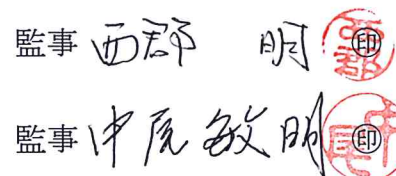 監事 西郡 明 ㊞
監事 中尾敏明 ㊞